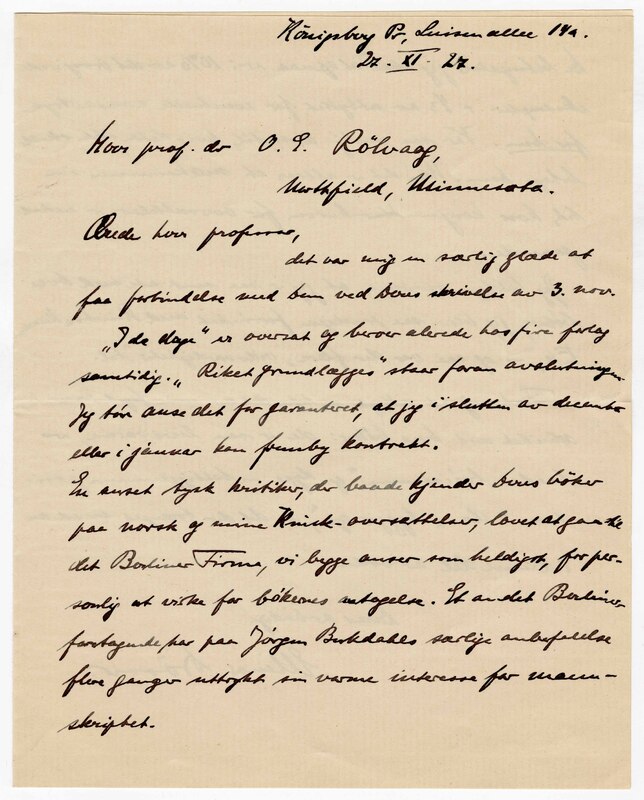 Königsberg Pr, Luisenallee 14a.
27. XI. 27.
Herr prof. dr O. E. Rölvaag,
Northfield, Minnesota.
Ærede herr professor,
det var mig en særlig glæde at
faa forbindelse med Dem ved Deres skrivelse av 3. nov.
„I de dage" er oversat og beroer allerede hos fire forlag
samtidig. „Riket grundlægges" staar foran avslutningen.
Jeg tör anse det for garanteret, at jeg i slutten av december
eller i januar kan fremby kontrakt.
En anset tysk kritiker, der baade kjender Deres böker
paa norsk og mine Kinck-oversættelser, lovet at gaa til
det Berliner Firma, vi begge anser som heldigst, for per-
sonlig at virke for bökernes antagelse. Et andet Berliner-
foretagende har paa Jörgen Bukdahls særlige anbefalelse
flere ganger uttrykt sin varme interesse for manu-
skriptet.